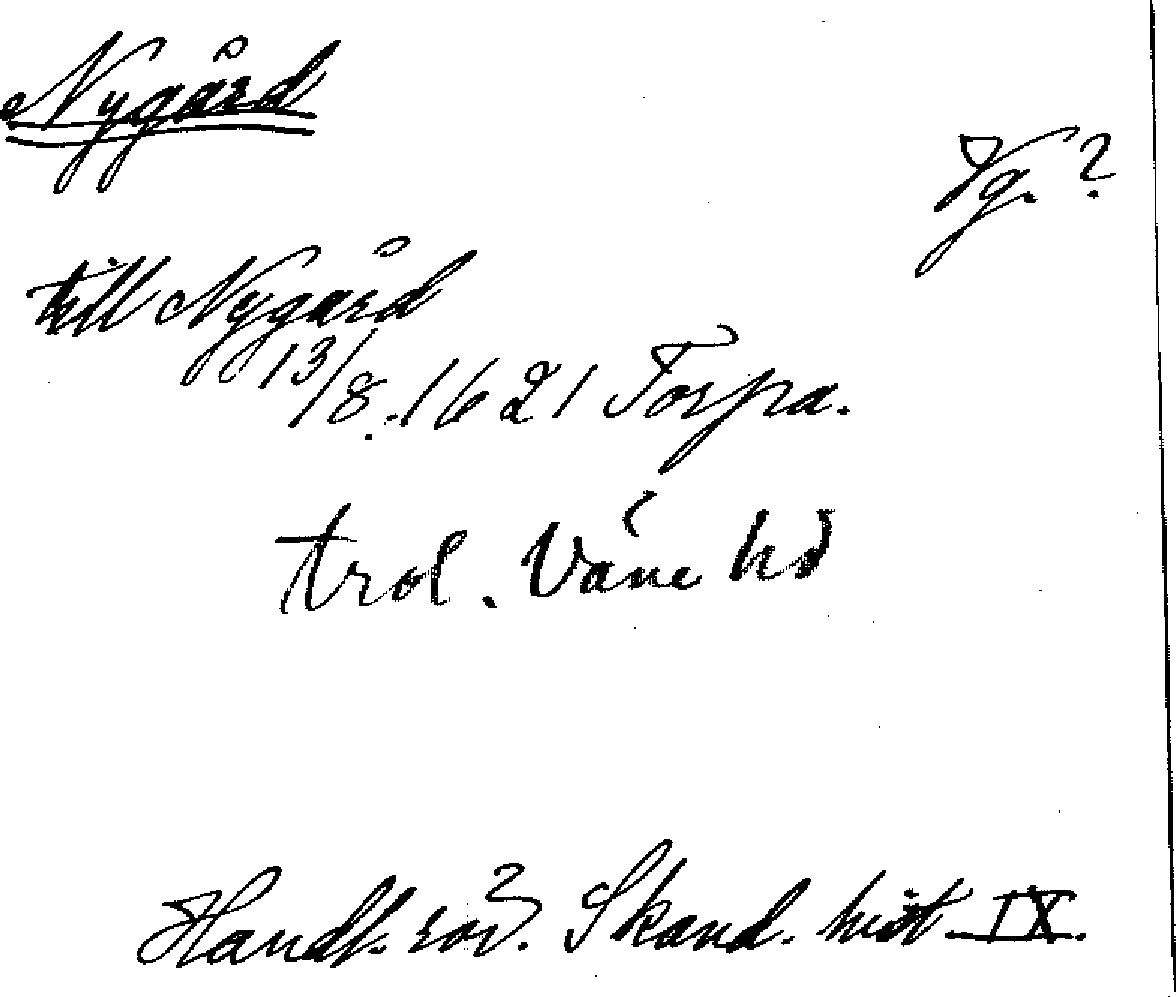 Nygård
Vg. ?
till Nygård
13/8. 1621 Torpa.
trol. Väne hd
Handl. rör. Skand. hist. IX.